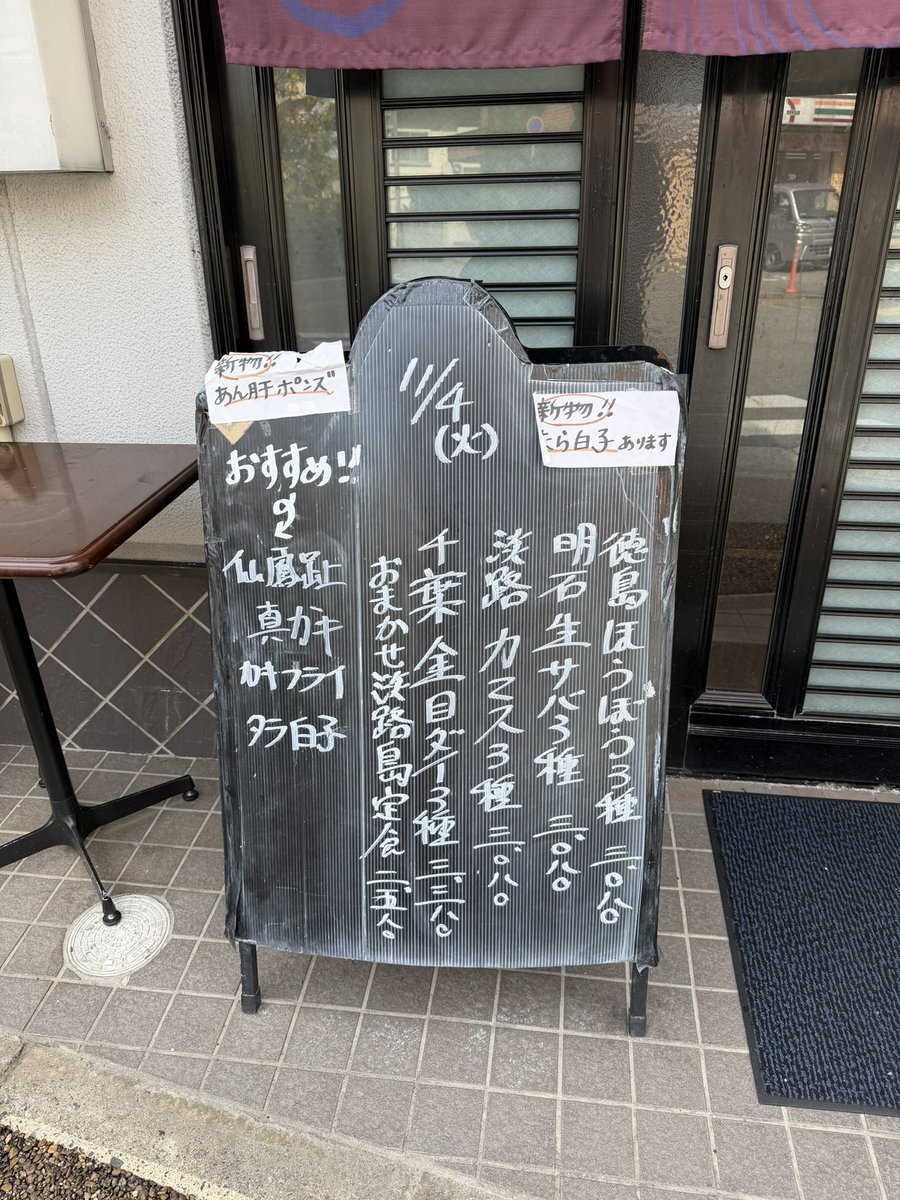 11/4
(火)
新物!!
たら白子あります
徳島ほうぼう3種 二.〇八〇
明石生サバ3種 二.〇八〇
淡路カマス3種 二.〇八〇
千葉金目ダイ3種
おまかせ淡路島定食 二.五八〇
新物!!
あん肝ポンズ
おすすめ!!
仙鳳趾
真カキ
カキフライ
タラ白子